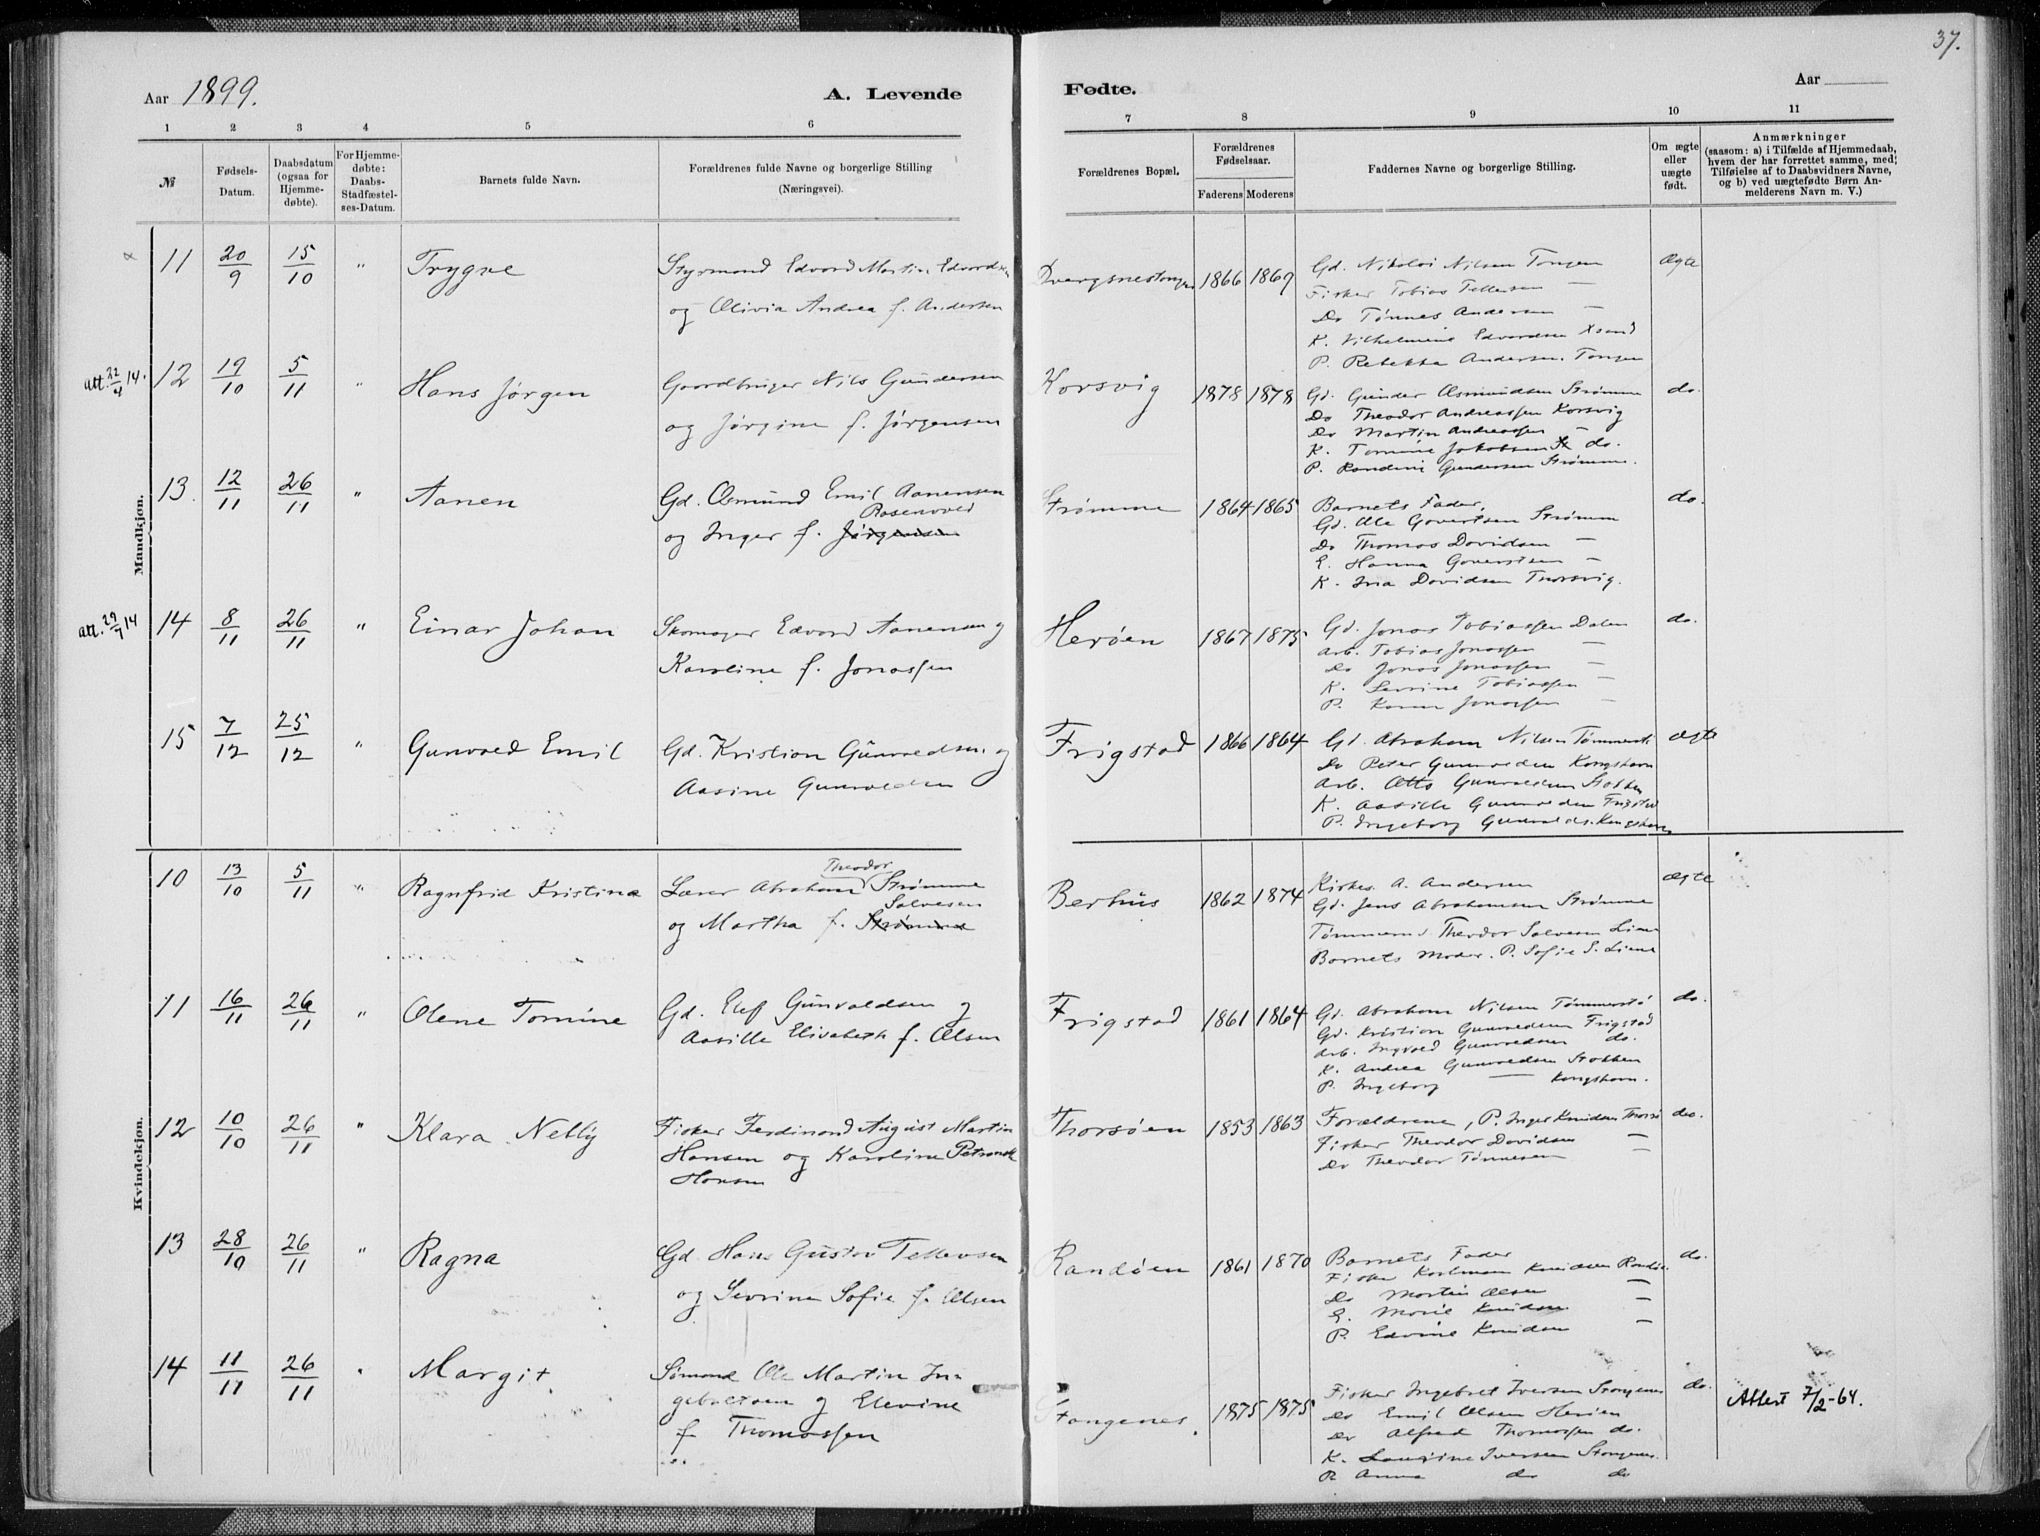 37.
Aar 1899.
A. Levende
Fødte.
Aar
1 2 3 4 5 6
7 8 9 10 11
№
Fødsels-
Datum.
Daabsdatum
(ogsaa for
Hjemme-
døbte).
For Hjemme-
døbte:
Daabs-
Stadfæstel-
ses-Datum.
Barnets fulde Navn.
Forældrenes fulde Navne og borgerlige Stilling
(Næringsvei).
Forældrenes Bopæl.
Forældrenes
Fødselsaar.
Faderens Moderens
Faddernes Navne og borgerlige Stilling.
Om ægte
eller
uægte
født.
Anmærkninger
(saasom: a) i Tilfælde af Hjemmedaab,
hvem der har forrettet samme, med
Tilføielse af to Daabsvidners Navne,
og b) ved uægtefødte Børn An-
melderens Navn m. V.)
Mandkjøn.
11 20/9 15/10 " Trygve
Styrmand Edvard Martin Edvardsen
og Olivia Andrea f. Andersen
Dvergsnestangen 1866 1869
Gd. Nikolai Nilsen Tangen
Fisker Tobias Tellefsen —
Do Tønnes Andersen —
K. Vilhelmine Edvardsen Xsand
P. Rebekka Andersen. Tangen
Ægte
att. 22/4 14. 12 19/10 5/11 " Hans Jørgen
Gaardbruger Nils Gundersen
og Jørgine f. Jørgensen
Korsvig 1878 1878
Gd. Gunder Asmundsen Strømme
Do Theodor Andreassen Korsvig
Do Martin Andreassen —
K. Tomine Jakobsen do.
P. Randine Gundersen Strømme.
do.
13. 12/11 26/11 " Aanen
Gd. Osmund Emil Aanensen
Rosenvold
og Inger f. Jørgensen
Strømme 1864 1865
Barnets Fader,
Gd. Ole Govertsen Strømm
Do Thomas Davidsen —
E. Hanna Govertsen —
K. Ina Davidsen Thorsvig.
do.
att. 29/7 14 14 8/11 26/11 " Einar Johan
Skomager Edvard Aanensen og
Karoline f. Jonassen
Herøen 1867 1875
Gd. Jonas Tobiassen Dalen
Arb. Tobias Jonassen —
Do Jonas Jonassen —
K. Serine Tobiassen —
P. Karen Jonassen —
do.
15 7/12 25/12 " Gunvald Emil
Gd. Kristian Gunvaldsen og
Aasine Gunvaldsen
Frigstad 1866 1864
Gd. Abraham Nilsen Tømmerst
Do Peter Gunvaldsen Kongshavn
Arb. Otto Gunvaldsen Stokken
K. Aasille Gunvaldsen Frigstad
P. Ingeborg Gunvalds. Kongshavn
ægte
Kvindekjøn.
10 13/10 5/11 " Ragnfrid Kristine
Theodor
Lærer Abraham Strømme
Salvesen
og Martha f. Strømme
Berhus 1862 1874
Kirkes. A. Andersen
Gd. Jens Abrahamsen Strømme
Tømmermd Theodor Salvesen Liane
Barnets Moder. P. Sofie S. Liane
ægte
11 16/11 26/11 " Olene Tomine
Gd. Elef Gunvaldsen og
Aasille Elisabeth f. Olsen
Frigstad 1861 1864
Gd. Abraham Nilsen Tømmerstø
Gd. Kristian Gunvaldsen Frigstad
Arb. Ingvald Gunvaldsen do.
K. Andrea Gunvaldsen Stokken
P. Ingeborg — Kongshavn.
do.
12 10/10 26/11 " Klara Nelly
Fisker Ferdinand August Martin
Hansen og Karoline Petronelle
Hansen
Thorsøen 1853 1863
Forældrene, P. Inger Knudsen Thorsø
Fisker Theodor Davidsen —
Do Theodor Tønnesen —
do.
13 28/10 26/11 " Ragna
Gd. Hans Gustav Tellevsen
og Sevrine Sofie f. Olsen
Randøen 1861 1870
Barnets Fader
Fisker Karlman Knudsen Randø.
Do Martin Olsen —
E. Marie Knudsen —
P. Edvine Knudsen —
do.
14 11/11 26/11 " Margit
Sømand Ole Martin In-
gebretsen og Elevine
f Thomassen
Stangenes. 1875 1875
Fisker Ingebret Iversen Stangenes
Do Emil Olsen Herøen
Do Alfred Thomassen do.
K. Laurine Iversen Stangenes.
P. Anna do do
do.
Attest 7/2-64.